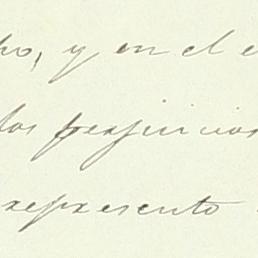 ho, y en el e
los perjuicios
represento